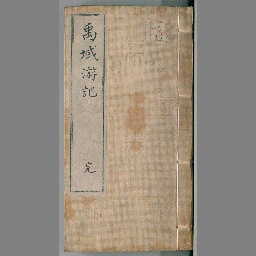 禹域游記
完